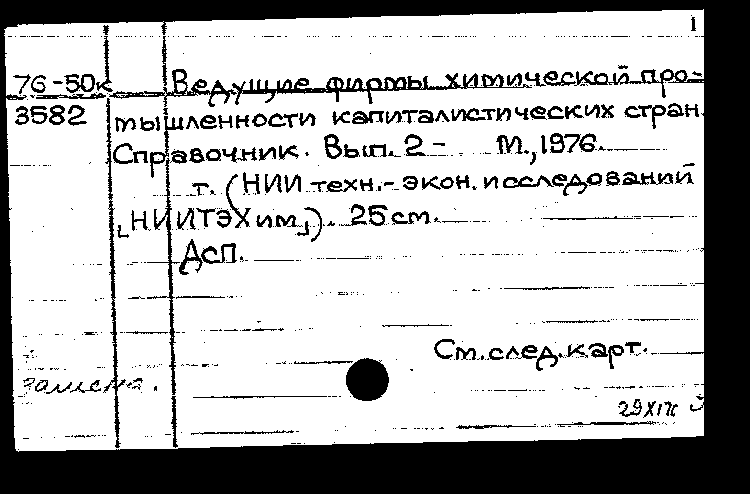 1
76-50к Ведущие фирмы химической про-
3582 мышленности капиталистических стран.
Справочник. Вып. 2 - М., 1976.
т. (НИИ техн.-экон. исследований
„НИИТЭХим“). 25 см.
ДСП.
См. след. карт.
замена.